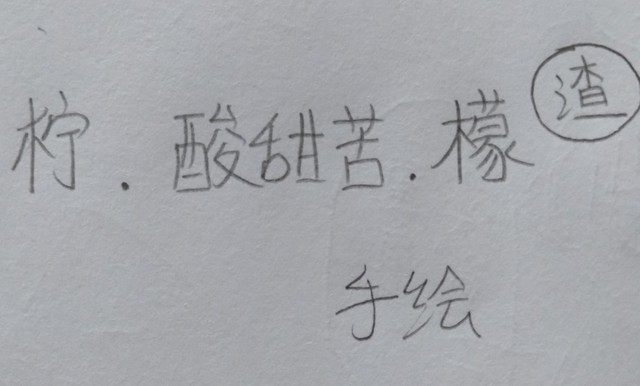 柠.酸甜苦.檬渣
手绘